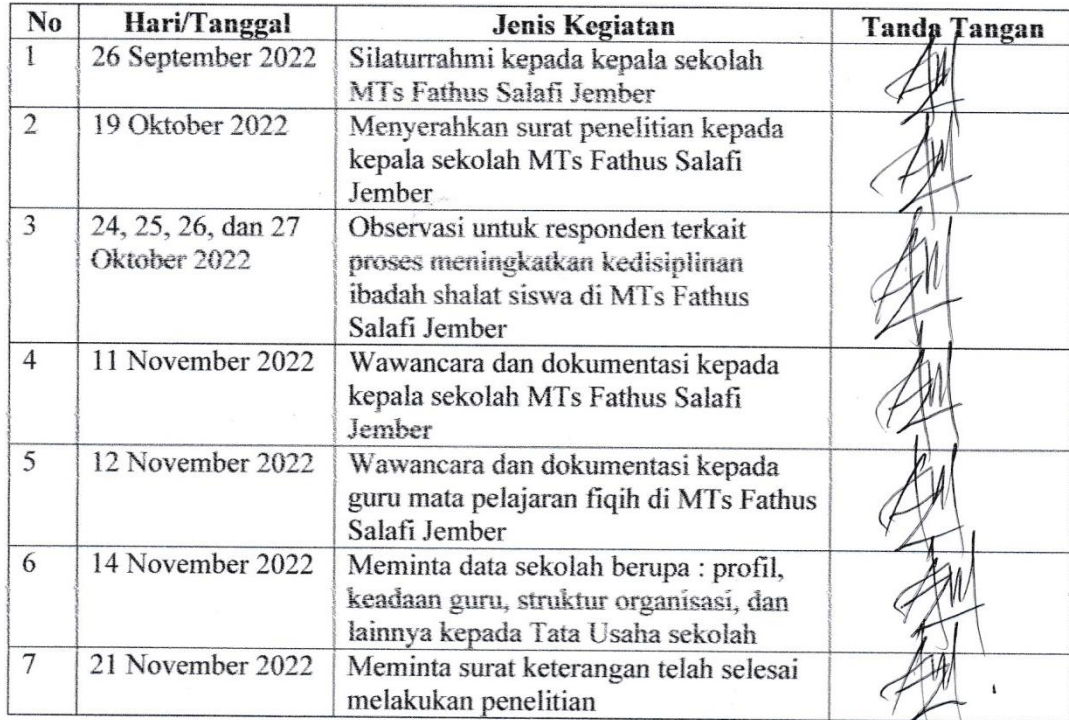 No Hari/Tanggal Jenis Kegiatan Tanda Tangan
1 26 September 2022 Silaturrahmi kepada kepala sekolah
MTs Fathus Salafi Jember
2 19 Oktober 2022 Menyerahkan surat penelitian kepada
kepala sekolah MTs Fathus Salafi
Jember
3 24, 25, 26, dan 27 Observasi untuk responden terkait
Oktober 2022 proses meningkatkan kedisiplinan
ibadah shalat siswa di MTs Fathus
Salafi Jember
4 11 November 2022 Wawancara dan dokumentasi kepada
kepala sekolah MTs Fathus Salafi
Jember
5 12 November 2022 Wawancara dan dokumentasi kepada
guru mata pelajaran fiqih di MTs Fathus
Salafi Jember
6 14 November 2022 Meminta data sekolah berupa : profil,
keadaan guru, struktur organisasi, dan
lainnya kepada Tata Usaha sekolah
7 21 November 2022 Meminta surat keterangan telah selesai
melakukan penelitian